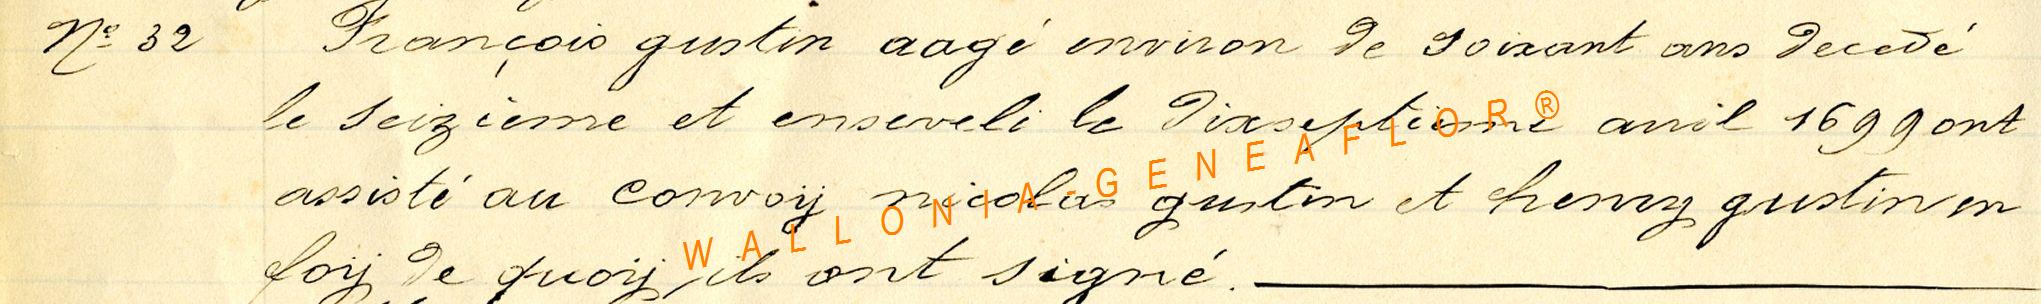 Nº 32 François gustin aagé environ de soixant ans decedé
le seizieme et enseveli le dixseptieme avril 1699 ont
assisté au convoÿ nicolas gustin et henry gustin en
foÿ de quoÿ ils ont signé.
WALLONIA-GENEAFLOR®